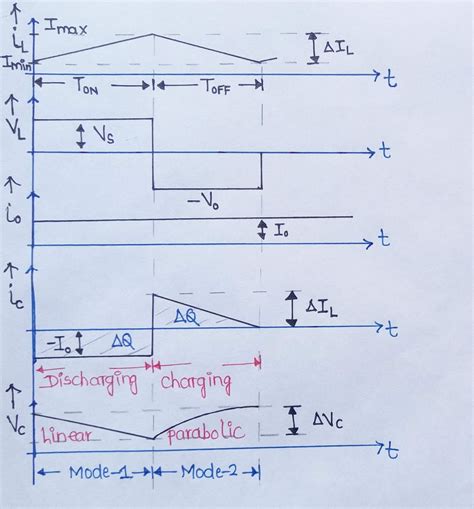 Imax
iL
Imin
ΔIL
t
TON
TOFF
VL
VS
t
-Vo
io
Io
t
ic
ΔIL
ΔQ
-Io
ΔQ
t
Discharging
Charging
Vc
ΔVc
Linear
parabolic
t
Mode-1
Mode-2